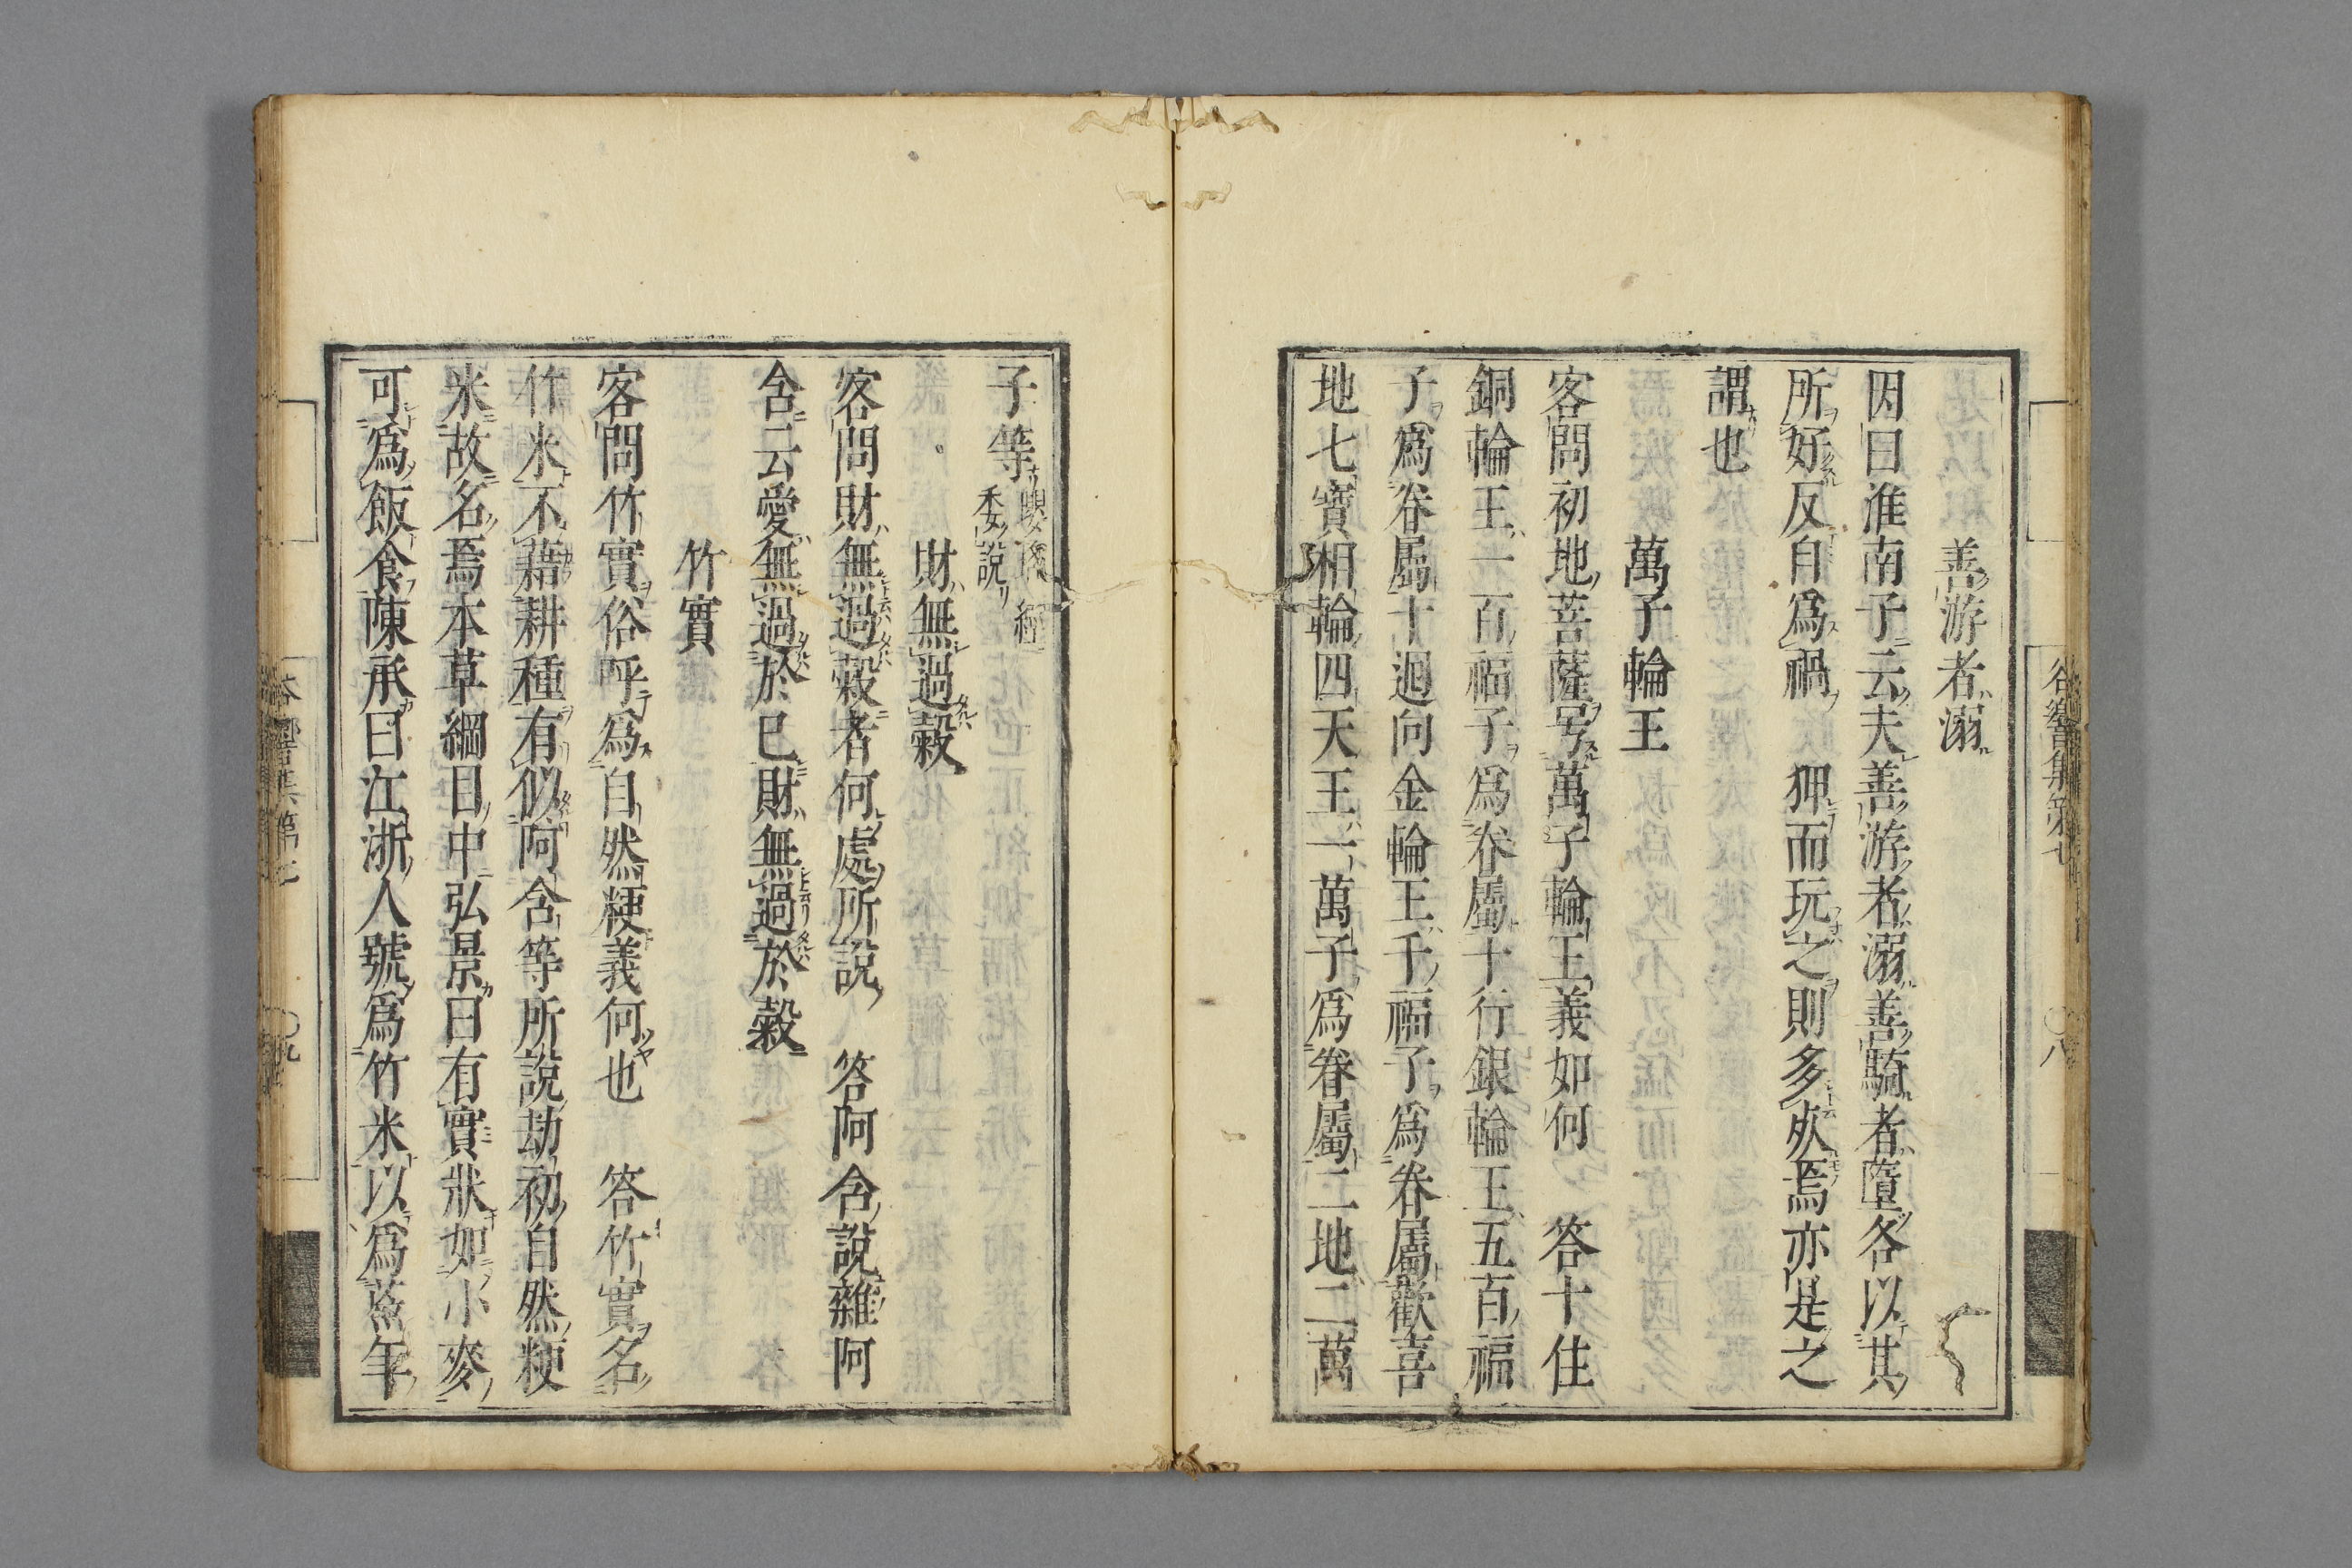 善游者溺
因曰淮南子云夫善游者溺善騎者墮各以其
所好反自爲禍 狎而玩之則多死焉亦是之
謂也
萬子輪王
客問初地菩薩号萬子輪王義如何 答十住
銅輪王一百福子爲眷屬十行銀輪王五百福
子爲眷屬十迴向金輪王千福子爲眷屬歡喜
地七寶相輪四天王一萬子爲眷屬二地二萬
谷響集第七 〇八
子等瓔珞經
委說
財無過穀
客問財無過穀者何處所說 答阿含說雜阿
含云愛無過於己財無過於穀
竹實
客問竹實俗呼爲自然粳義何也 答竹實名
竹米不藉耕種有似阿含等所說劫初自然粳
米故名焉本草綱目中弘景曰有實狀如小麥
可爲飯食陳承曰江浙人號爲竹米以爲荒年
谷響集第七 〇九